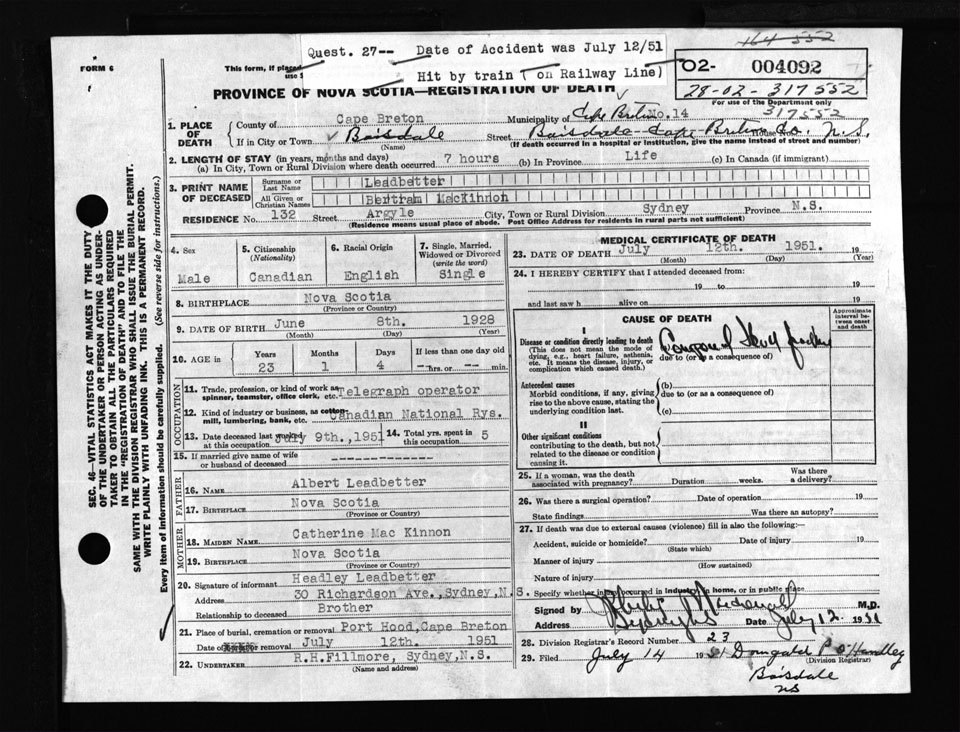 164 552
Quest. 27-- Date of Accident was July 12/51
Hit by train ( on Railway Line)
FORM 6
This form, if placed
use s
02- 004092
28-02-317552
For use of the Department only
317552
PROVINCE OF NOVA SCOTIA—REGISTRATION OF DEATH
1. PLACE OF DEATH
County of Cape Breton Municipality of Cape Breton No. 14
If in City or Town Boisdale Street Boisdale Cape Breton Co. N.S.
(Name) (If death occurred in a hospital or institution, give the name instead of street and number)
2. LENGTH OF STAY (in years, months and days)
(a) In City, Town or Rural Division where death occurred 7 hours (b) In Province Life (c) In Canada (if immigrant)
3. PRINT NAME OF DECEASED
Surname or Last Name Leadbetter
All Given or Christian Names Bertram MacKinnon
RESIDENCE No. 132 Street Argyle City, Town or Rural Division Sydney Province N.S.
(Residence means usual place of abode. Post Office Address for residents in rural parts not sufficient)
4. Sex Male
5. Citizenship (Nationality) Canadian
6. Racial Origin English
7. Single, Married, Widowed or Divorced (write the word) Single
8. BIRTHPLACE Nova Scotia
(Province or Country)
9. DATE OF BIRTH June 8th. 1928
(Month) (Day) (Year)
10. AGE in Years 23 Months 1 Days 4 If less than one day old --- hrs. or --- min.
OCCUPATION
11. Trade, profession, or kind of work as spinner, teamster, office clerk, etc. Telegraph operator
12. Kind of industry or business, as cotton-mill, lumbering, bank, etc. Canadian National Rys.
13. Date deceased last worked at this occupation July 9th.,1951
14. Total yrs. spent in this occupation 5
15. If married give name of wife or husband of deceased -------------
FATHER
16. NAME Albert Leadbetter
17. BIRTHPLACE Nova Scotia
(Province or Country)
MOTHER
18. MAIDEN NAME Catherine Mac Kinnon
19. BIRTHPLACE Nova Scotia
(Province or Country)
20. Signature of informant Headley Leadbetter
Address 30 Richardson Ave.,Sydney,N.S.
Relationship to deceased Brother
21. Place of burial, cremation or removal Port Hood,Cape Breton
Date of burial or removal July 12th. 1951
22. UNDERTAKER R.H.Fillmore, Sydney,N.S.
(Name and address)
MEDICAL CERTIFICATE OF DEATH
23. DATE OF DEATH July 12th. 1951. 19
(Month) (Day) (Year)
24. I HEREBY CERTIFY that I attended deceased from:
19 to 19
and last saw h alive on 19
CAUSE OF DEATH
Approximate interval between onset and death
I
Disease or condition directly leading to death
(This does not mean the mode of dying, e.g., heart failure, asthenia, etc. It means the disease, injury, or complication which caused death.)
(a) Compound Skull fracture
due to (or as a consequence of)
Antecedent causes
Morbid conditions, if any, giving rise to the above cause, stating the underlying condition last.
(b)
due to (or as a consequence of)
(c)
II
Other significant conditions
contributing to the death, but not related to the disease or condition causing it.
25. If a woman, was the death associated with pregnancy? Duration weeks. Was there a delivery?
26. Was there a surgical operation? Date of operation 19
State findings Was there an autopsy?
27. If death was due to external causes (violence) fill in also the following:—
Accident, suicide or homicide? Date of injury 19
(State which)
Manner of injury
(How sustained)
Nature of injury
Specify whether injury occurred in industry, in home, or in public place
Signed by M.D.
Address Date July 12 1951
28. Division Registrar's Record Number 23
29. Filed July 14 1951 Dougald P O'Handley
(Division Registrar)
Boisdale
NS
SEC. 46—VITAL STATISTICS ACT MAKES IT THE DUTY
OF THE UNDERTAKER OR PERSON ACTING AS UNDER-
TAKER TO OBTAIN ALL THE PARTICULARS REQUIRED
IN THE "REGISTRATION OF DEATH" AND TO FILE THE
SAME WITH THE DIVISION REGISTRAR WHO SHALL ISSUE THE BURIAL PERMIT.
WRITE PLAINLY WITH UNFADING INK. THIS IS A PERMANENT RECORD.
Every item of information should be carefully supplied. (See reverse side for instructions.)